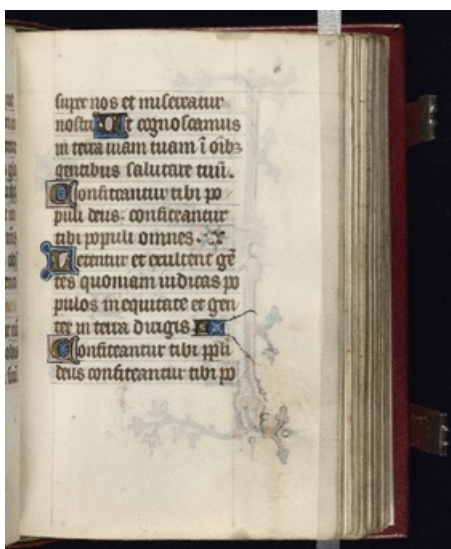 super nos et misereatur
nostri Ut cognoscamus
in terra uiam tuam ī oib3
gentibus salutare tuū.
Confiteantur tibi po
puli deus: confiteantur
tibi populi omnes.
Letentur et exultent gē
tes quoniam iudicas po
pulos in equitate et gen
tes in terra dirigis
Confiteantur tibi ppli
deus confiteantur tibi po